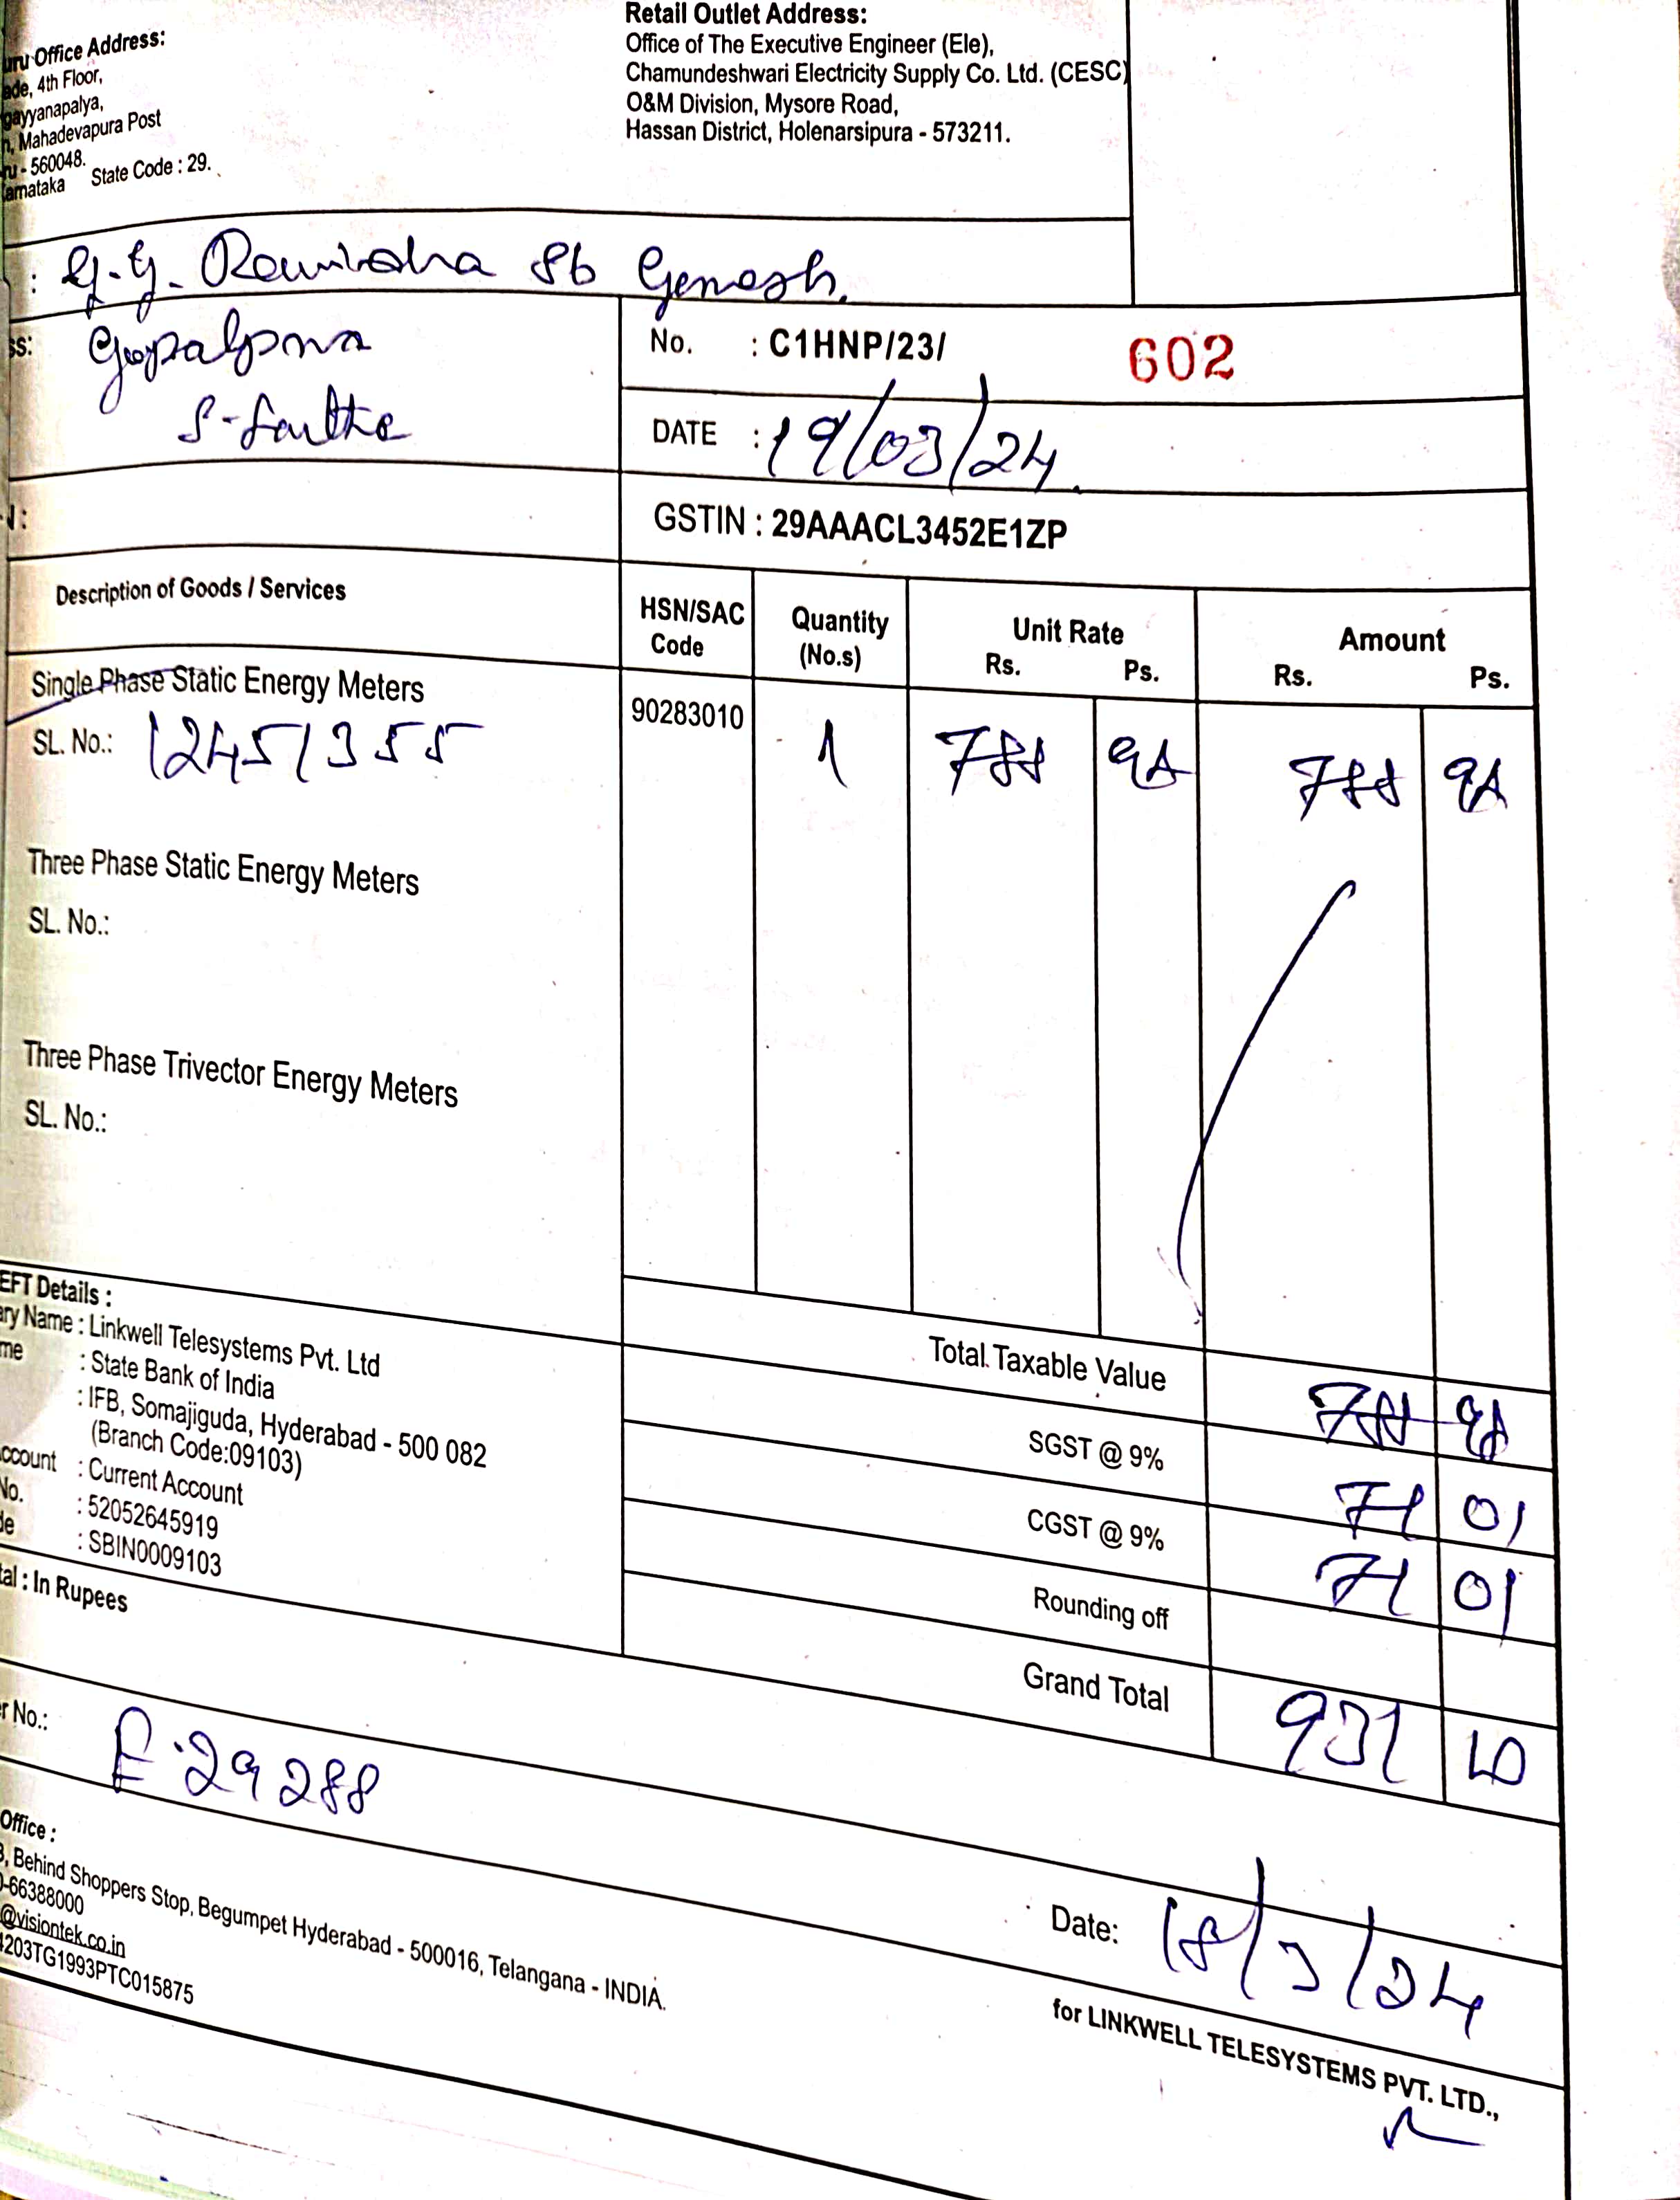 Office Address:
ade, 4th Floor,
gayyanapalya,
n, Mahadevapura Post
ru - 560048.
arnataka State Code : 29.
Retail Outlet Address:
Office of The Executive Engineer (Ele),
Chamundeshwari Electricity Supply Co. Ltd. (CESC)
O&M Division, Mysore Road,
Hassan District, Holenarsipura - 573211.
: G.G. Ravindra Genesh.
ss: Gopalpura
No. : C1HNP/23/ 602
DATE : 19/03/24.
GSTIN : 29AAACL3452E1ZP
Description of Goods / Services
HSN/SAC Code
Quantity (No.s)
Unit Rate
Rs. Ps.
Amount
Rs. Ps.
Single Phase Static Energy Meters
SL. No.: 12451355
90283010 1 788 98 788 98
Three Phase Static Energy Meters
SL. No.:
Three Phase Trivector Energy Meters
SL. No.:
EFT Details :
ary Name : Linkwell Telesystems Pvt. Ltd
me : State Bank of India
: IFB, Somajiguda, Hyderabad - 500 082
(Branch Code:09103)
ccount : Current Account
No. : 52052645919
de : SBIN0009103
Total Taxable Value 788 98
SGST @ 9% 71 01
CGST @ 9% 71 01
Rounding off
Grand Total 931 00
tal : In Rupees
r No.: E.29288
Date: 18/3/24
Office :
3, Behind Shoppers Stop, Begumpet Hyderabad - 500016, Telangana - INDIA.
0-66388000
@visiontek.co.in
4203TG1993PTC015875
for LINKWELL TELESYSTEMS PVT. LTD.,